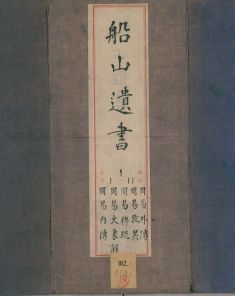 船山遺書
周易外傳
周易攷異
周易稗疏
周易大象解
周易內傳